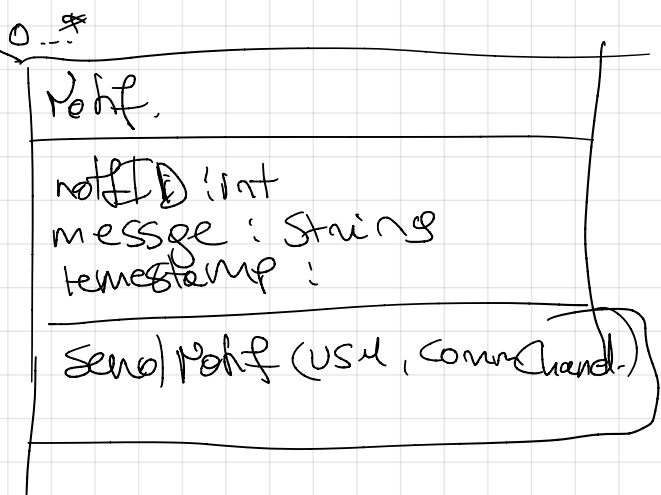 0...*
Notif.
notifID : int
messge : String
temestamp :
Send Notif (user, Comm Chanel.)